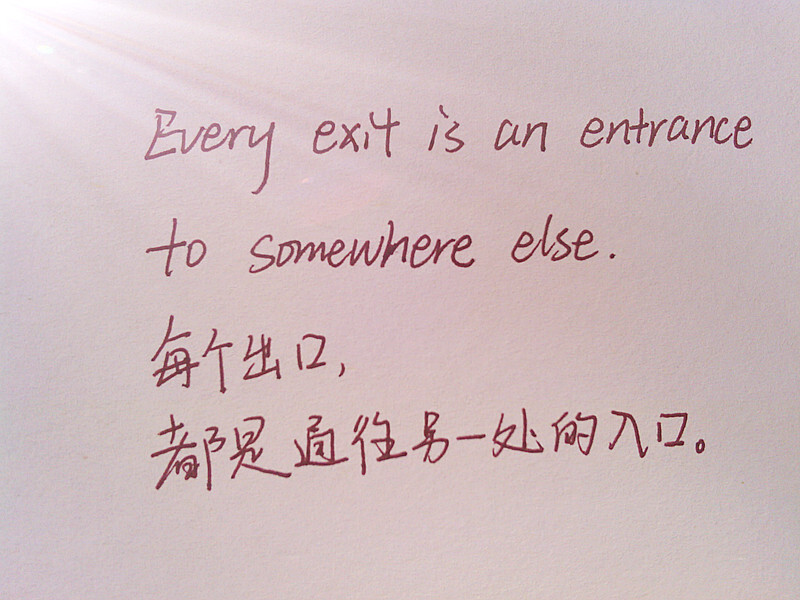 Every exit is an entrance
to somewhere else.
每个出口,
都是通往另一处的入口。